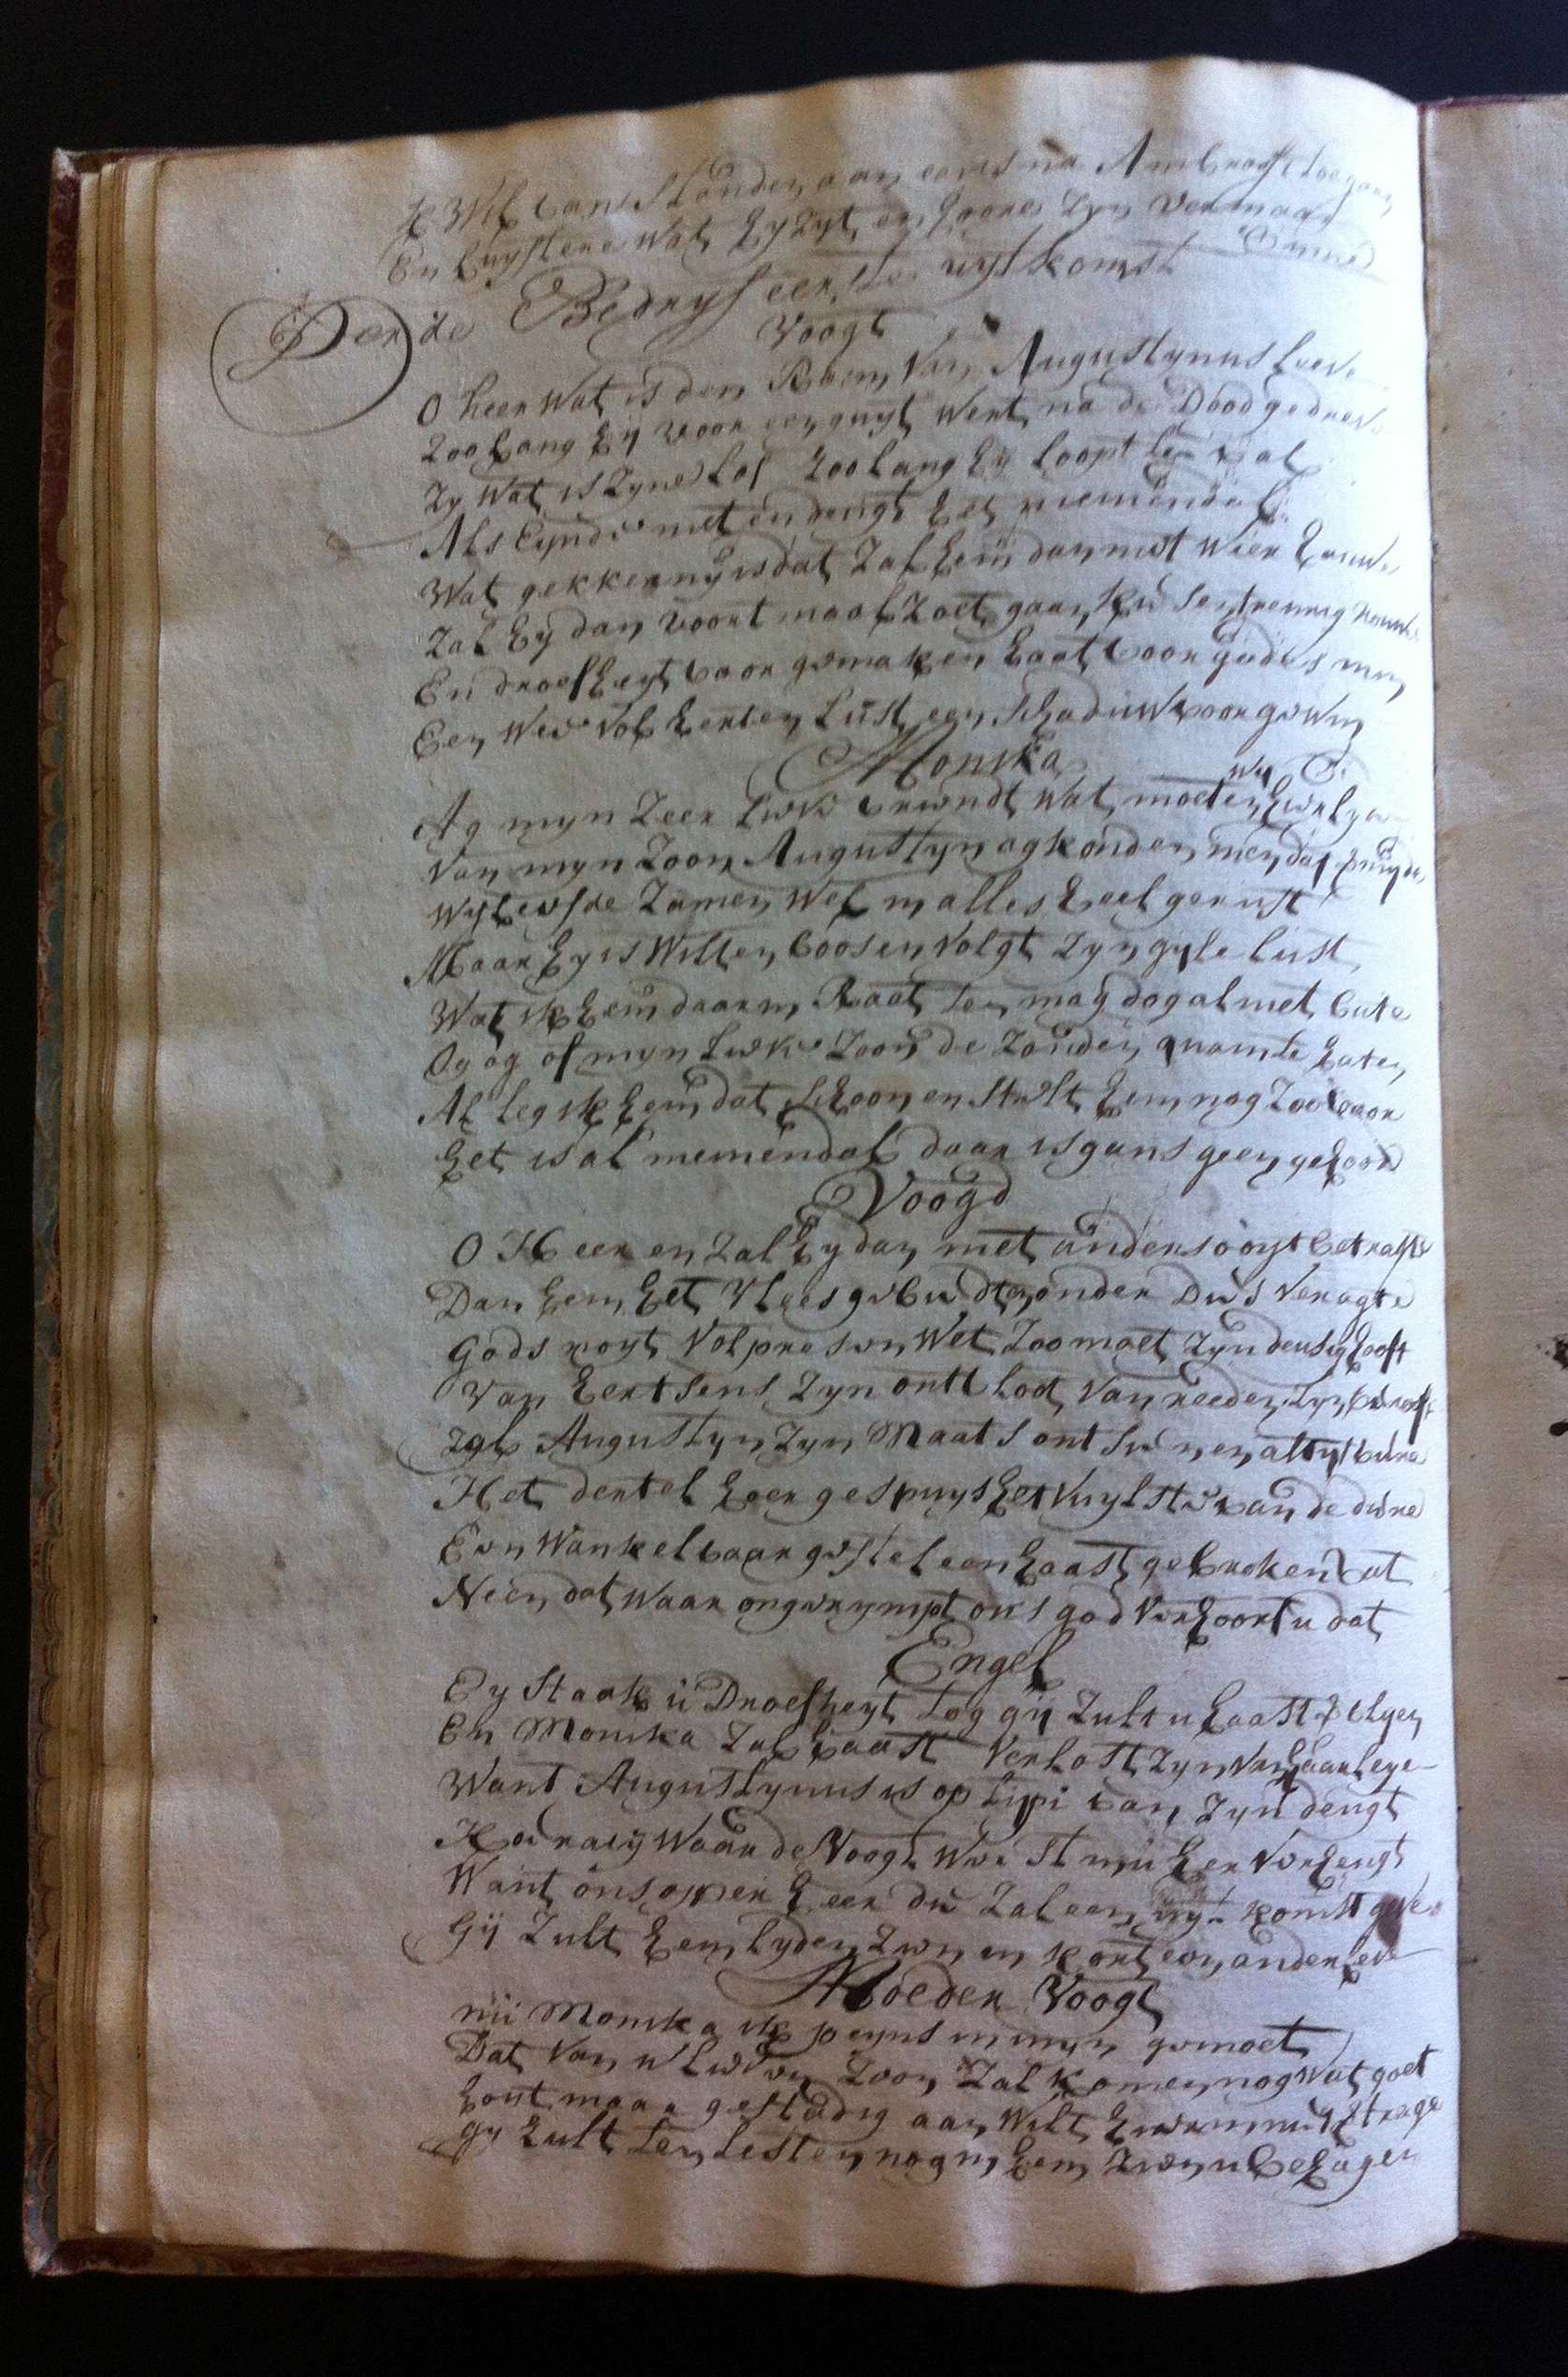 ik Wil van Stonden aan eens na Ambroost toe gaan
En luystere Wat hy zyt en hoore zyn vermaan
binne
Derde Bedryf eerste uytkomst
Voogt
O heer Wat is den Roem Van Augustynus leeve
Zoo lang hy voor een guyt Wert na de Dood gedreve
Zy Wat is zyne lof Zoo lang hy loopt te val
Als Eynde niet en deugt het niemendal
Wat gekkerny is dat Zal hem dan niet Wier houwe
Zal hy dan voort maal Zoet gaan
En droefheyt voor gemak en haat voor godes min
Een Wee Vol herten lust een schaduw voor gewin
Monika
wy
Ag myn Zeer lieve vriendt Wat moeten hier lyde
Van myn Zoon Augustyn ag konden men dat
Wy leefde Zamen Wel in alles heel gerust
Maar hy is Wilt en boos en Volgt Zyn gyle lust
Wat ik hem daar in Raat ten mag dog al niet bate
Og og of myn lieve Zoon de Zonden quamte hate
Al leg ik hem dat schoon en stelt hem nog Zoo voor
het is al niemendal daar is gans geen gehoor
Voogd
O Heer en Zal hy dan niet anders ooyt betragte
Dan hem het Vlees gebiedt en onder dies Veragte
Gods noyt Volpresen Wet Zoo moet Zyn deusig hooft
Van hert sens Zyn ontbloot Van reeden Zyn berooft
Zal Augustyn Zyn Maats ontsien en altyt viere
Het dertel hoer gespuys het Vuylste van de diere
Een Wankelbaar gestel een haast gebroken vat
Neen dat Waar ongerympt ons god Verhoort u dat
Engel
Ey staak u Droefheyt tog gy Zult u haast
En Monika Zal haast Verlost Zyn Van haar leye
Want Augustynus is op tipi van Zyn deugt
Waar de Voogt Weest nu her Verheugt
Want ons opper heer die Zal een uyt komst geve
Gij Zult hem lyden Zien in kort een ander leve
Moeder Voogt
nu Monika ik peyns in myn gemoet
Dat Van u lieven Zoon Zal komen nog Wat goet
hout maar gestadig aan Wilt hier in niet Trage
gy Zult ten lesten nog in hem Zien u behagen